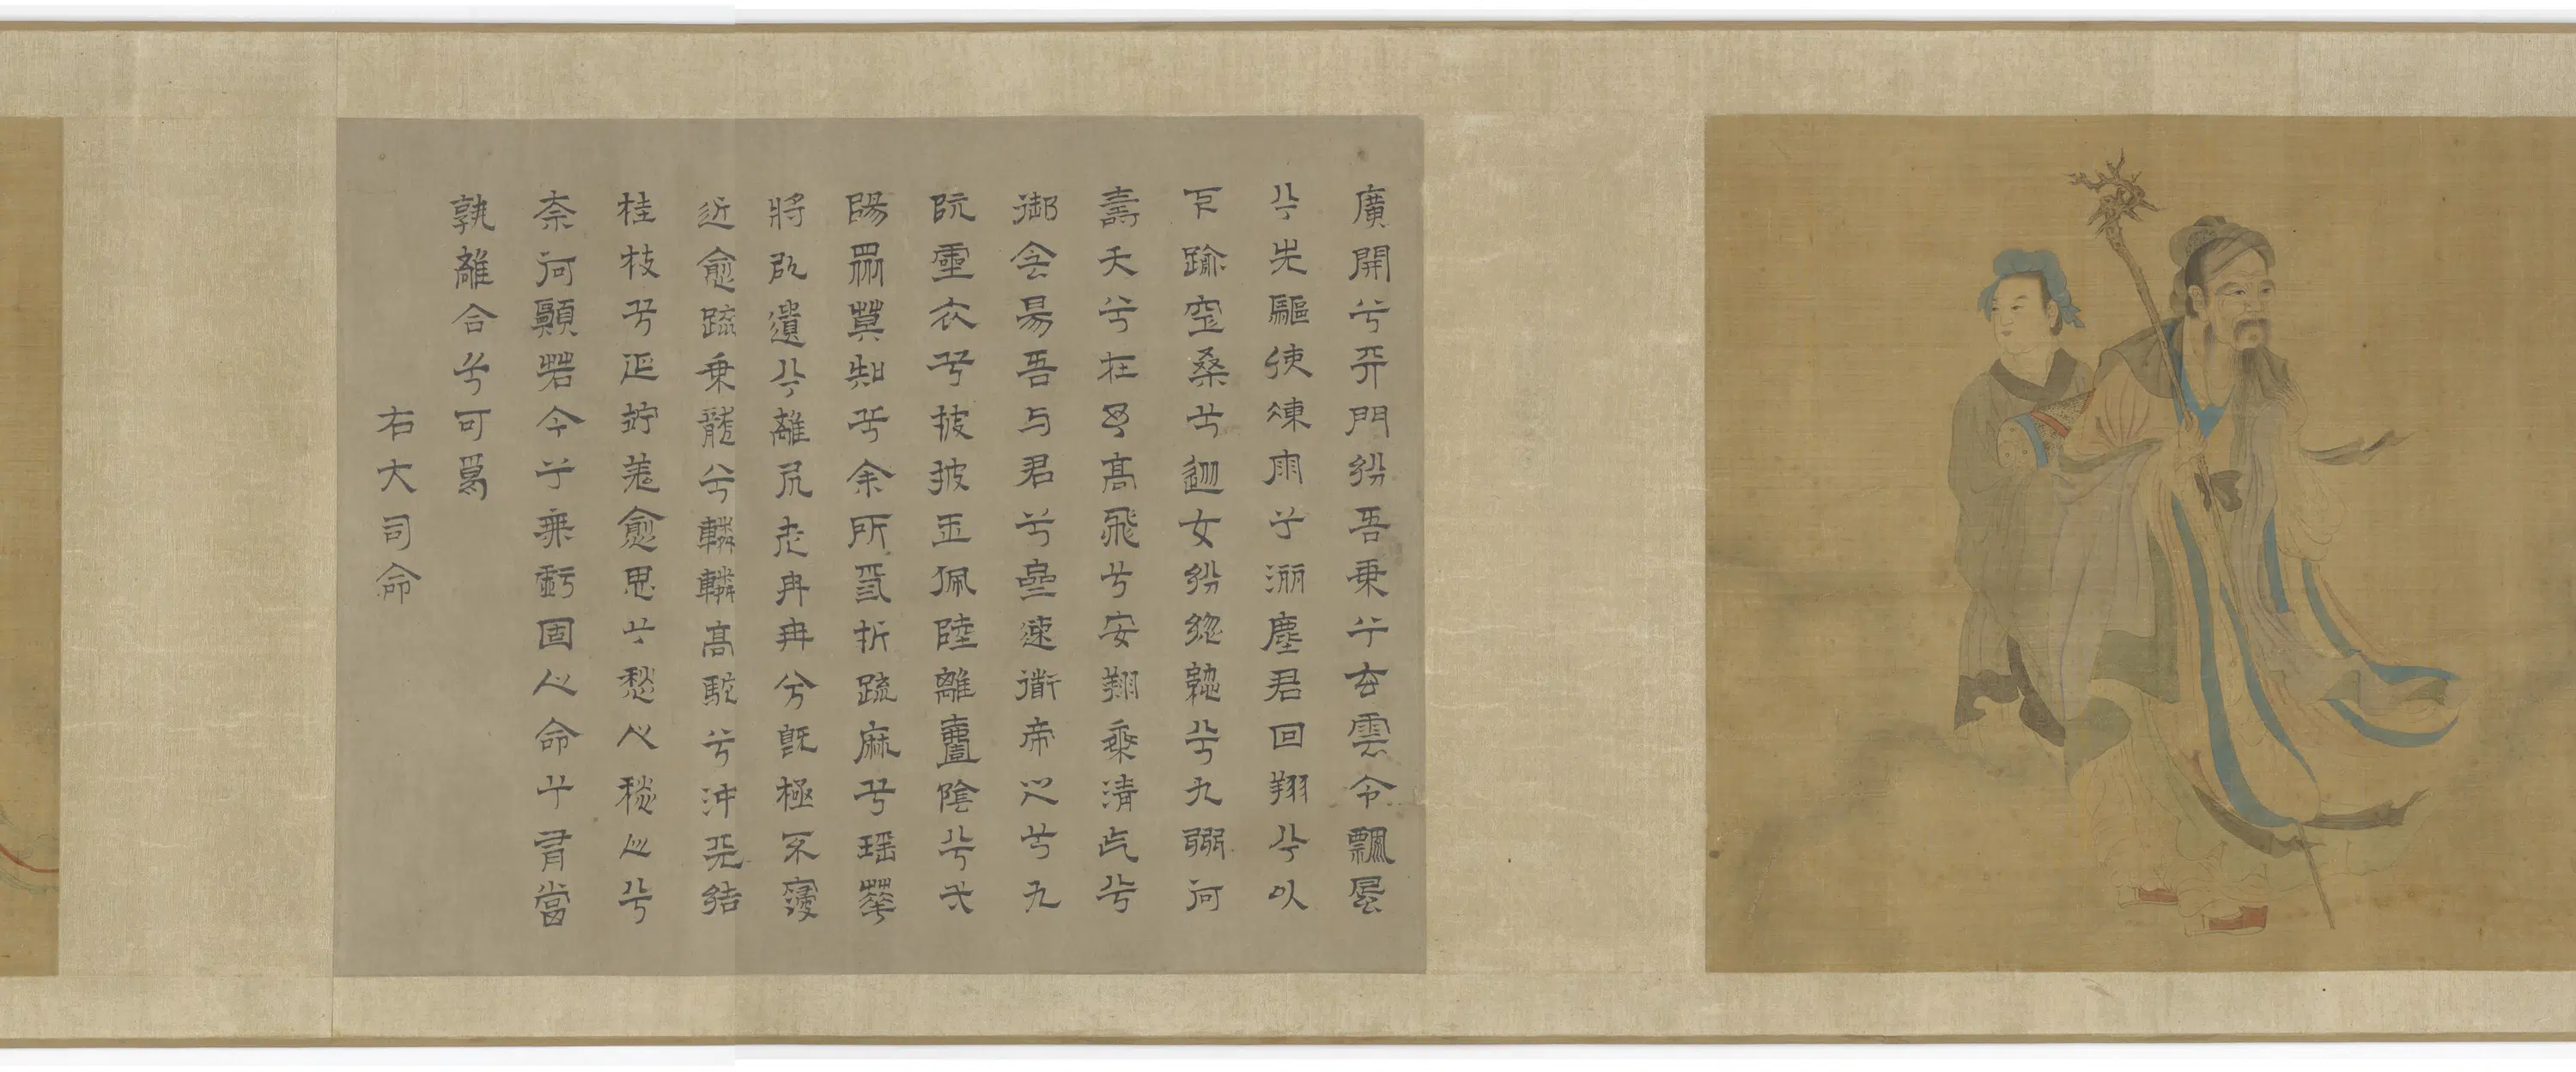 廣開兮天門紛吾乗兮玄雲令飄風
兮先驅使涷雨兮灑塵君回翔兮以
下踰空桑兮從女紛緫緫兮九州何
壽夭兮在予高飛兮安翔乘清气兮
御侌昜吾与君兮齋速導帝之兮九
阬靈衣兮披披玉佩陸離壹陰兮弌
陽眾莫知兮余所爲折疏麻兮瑤華
將以遺兮離居老冉冉兮既極不寖
近愈疏乗龍兮轔轔高駝兮沖天結
桂枝兮延竚羌愈思兮愁人愁人兮
奈何願若今兮無虧固人命兮有當
孰離合兮可爲
右大司命